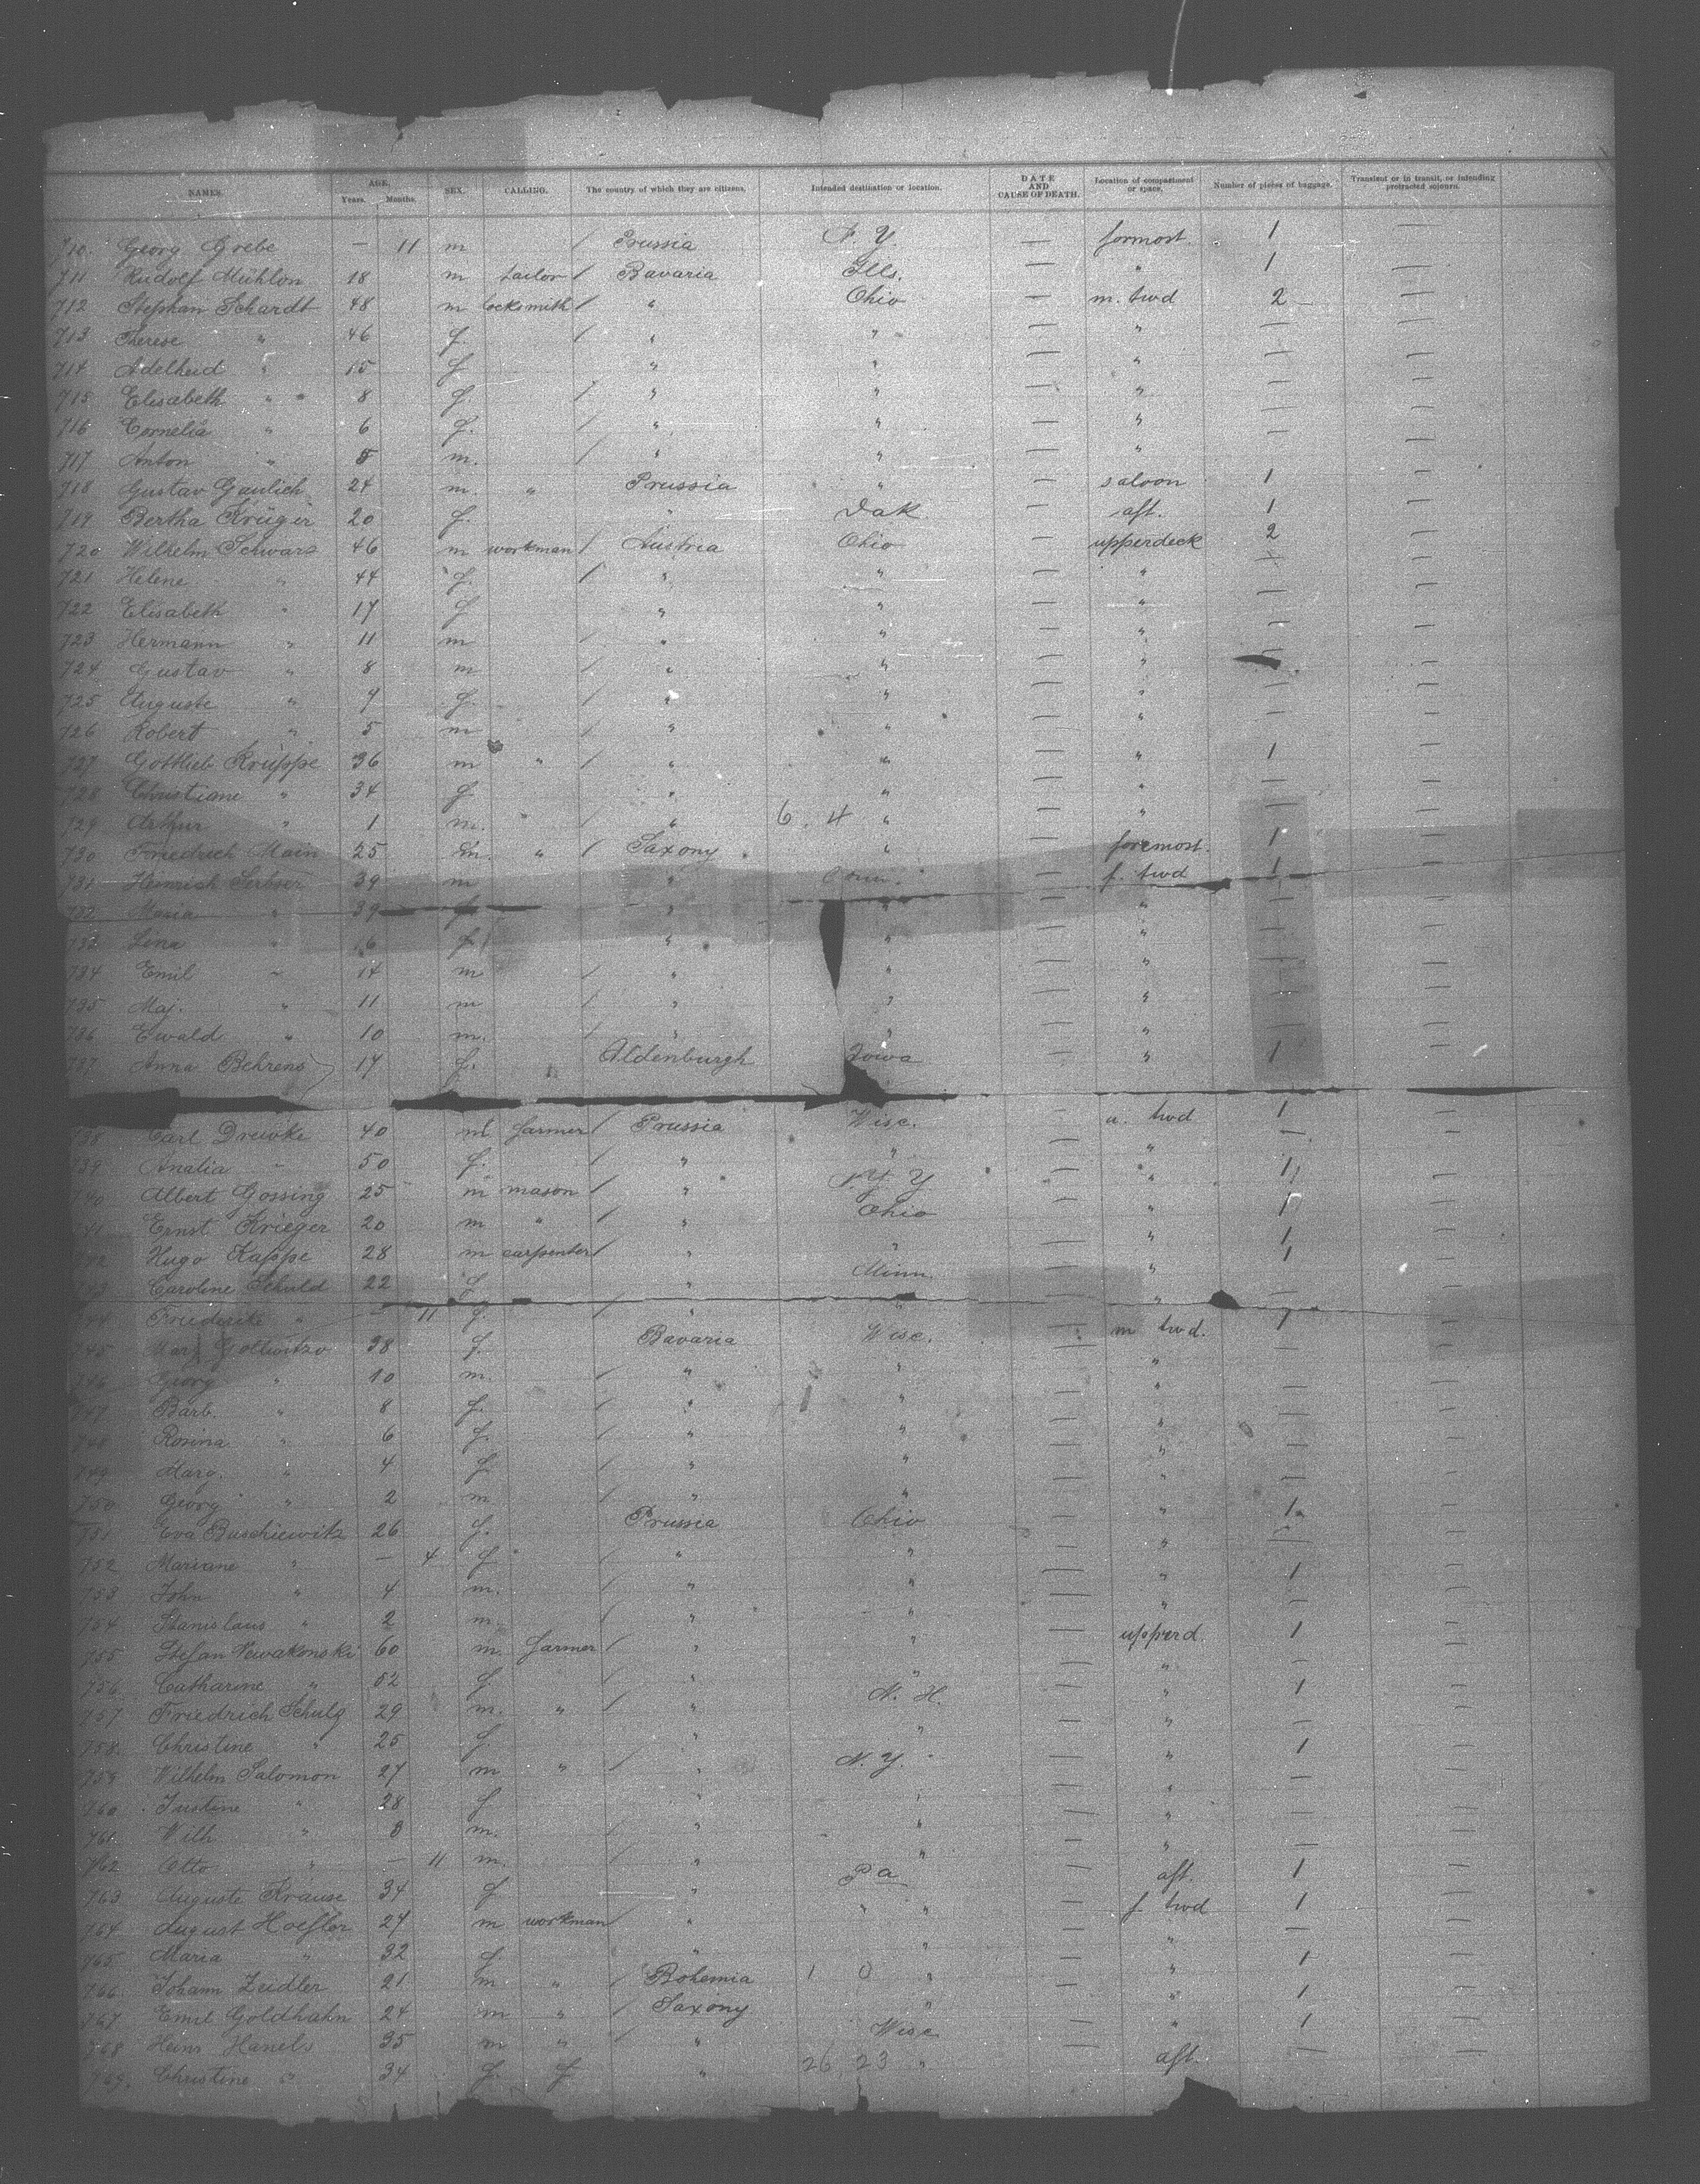 NAMES. AGE. Years. Months. SEX. CALLING. The country of which they are citizens. Intended destination or location. DATE AND CAUSE OF DEATH. Location of compartment or space. Number of pieces of baggage. Transient or in transit, or intending protracted sojourn.
710. Georg Grebe — 11 m / Prussia N. Y. — formost. 1 —
711 Rudolf Mühlon 18 m tailor / Bavaria Ills. — " 1 —
712 Stephan Schardt 48 m locksmith / " Ohio — m. twd 2 —
713 Therese " 46 f. / " " — " — —
714 Adelheid " 15 f " " — " — —
715 Elisabeth " 8 f. / " " — " — —
716 Cornelia " 6 f. / " " — " — —
717 Anton " 5 m. / " " — " — —
718 Gustav Gaulich 24 m. " Prussia " — saloon 1 —
719 Bertha Krüger 20 f. " Dak — aft. 1 —
720 Wilhelm Schwarz 46 m workman / Austria Ohio — upperdeck 2 —
721 Helene " 44 f. / " " — " — —
722 Elisabeth " 17 f " " — " — —
723 Hermann " 11 m / " " — " — —
724 Gustav " 8 m / " " — " — —
725 Auguste " 7 f. / " " — " — —
726 Robert " 5 m / " " — " — —
727 Gottlieb Kruppe 36 m " / " " — " 1 —
728 Christiane " 34 f " " — " — —
729 Arthur " 1 m. " / " 6. 4 " — " — —
730 Friedrich Main 25 m. " / Saxony " — foremost. 1 —
731 Heinrich Serbser 39 m " — f. twd 1 —
732 Maria " 39 f " " — " — —
733 Lina " 16 f " " — " — —
734 Emil " 14 m / " " — " — —
735 Max. " 11 m / " " — " — —
736 Ewald " 10 m. / " " — " — —
737 Anna Behrens 17 f. " Oldenburgh Iowa — " 1 —
738 Carl Drewke 40 m farmer / Prussia Wisc. — u. twd 1 —
739 Analia " 50 f. / " " — " — —
740 Albert Gossing 25 m mason / " N. Y. — " 1 —
741 Ernst Krieger 20 m " / " Ohio — " 1 —
742 Hugo Kappe 28 m carpenter / " " — " 1 —
743 Caroline Schuld 22 f " Minn. — " 1 —
744 Friederike " — 11 f. / " " — " — —
745 Marg Gollwitzo 38 f. Bavaria Wisc. — m twd. 1 —
746 Georg " 10 m. / " " — " — —
747 Barb. " 8 f. / " " — " — —
748 Rosina " 6 f. / " " — " — —
749 Marg. " 4 f / " " — " — —
750 Georg " 2 m / " " — " — —
751 Eva Buschiewitz 26 f. Prussia Ohio — " 1 —
752 Mariane " — 4 f / " " — " — —
753 John " 4 m. / " " — " 1 —
754 Stanislaus " 2 m. / " " — " — —
755 Stefan Newakonski 60 m. farmer / " " — upperd. 1 —
756 Catharine " 52 f. " " — " — —
757 Friedrich Schulz 29 m. " / " N. H. — " 1 —
758. Christine " 25 f " " — " — —
759 Wilhelm Salomon 27 m " / " N. Y. — " 1 —
760 Justine " 28 f " " — " — —
761 Wilh " 3 m. / " " — " — —
762 Otto " — 11 m. / " " — " — —
763 Auguste Krause 34 f " Pa — aft. 1 —
764 August Hoefler 27 m workman / " " " — f twd 1 —
765 Maria " 32 f. " " — " — —
766 Johann Zeidler 21 m " / Bohemia 1 0 " — " 1 —
767 Emil Goldhahn 24 m " / Saxony " — " 1 —
768 Heinr Hanels 35 m " / " Wisc — " 1 —
769. Christine " 34 f. f " 26 23 " — aft. — —